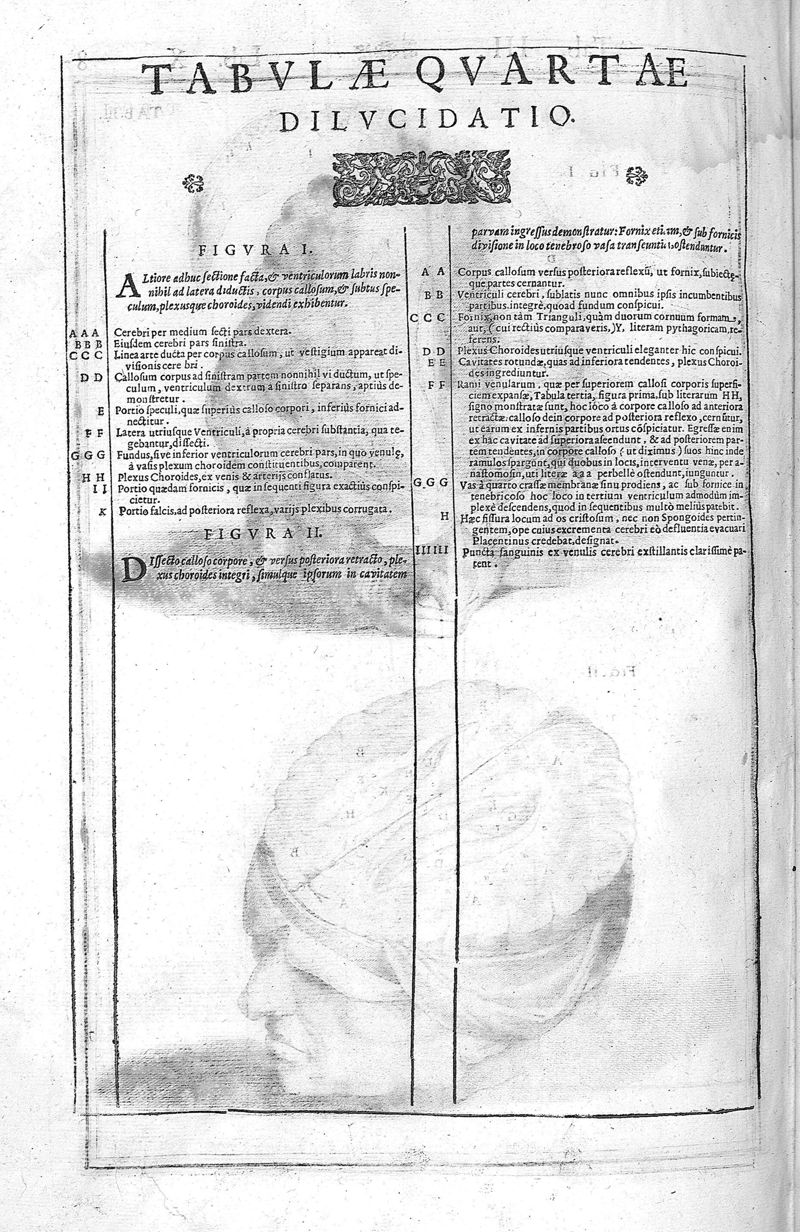 TABVLÆ QVARTAE
DILVCIDATIO.
FIGVRA I.
ALtiore adhuc sectione facta, & ventriculorum labris non-
nihil ad latera diductis, corpus callosum, & subtus spe-
culum, plexusque choroides, videndi exhibentur.
A A A Cerebri per medium secti pars dextera.
B B B Eiusdem cerebri pars sinistra.
C C C Linea arte ducta per corpus callosum, ut vestigium appareat di-
visionis cerebri.
D D Callosum corpus ad sinistram partem nonnihil vi ductum, ut spe-
culum, ventriculum dextrum a sinistro separans, aptius de-
monstretur.
E Portio speculi, quæ superius calloso corpori, inferius fornici ad-
nectitur.
F F Latera utriusque Ventriculi, à propria cerebri substantia, qua te-
gebantur, dissecti.
G G G Fundus, sive inferior ventriculorum cerebri pars, in quo venulę,
à vasis plexum choroidem constituentibus, comparent.
H H Plexus Choroides, ex venis & arterijs conflatus.
I I Portio quædam fornicis, quæ in sequenti figura exactius conspi-
cietur.
K Portio falcis, ad posteriora reflexa, varijs plexibus corrugata.
FIGVRA II.
DIssecto calloso corpore, & versus posteriora retracto, ple-
xus choroides integri, simulque ipsorum in cavitatem
parvam ingressus demonstratur: Fornix etiam, & sub fornicis
divisione in loco tenebroso vasa transeuntia ostenduntur.
A A Corpus callosum versus posteriora reflexũ, ut fornix, subiectę-
que partes cernantur.
B B Ventriculi cerebri, sublatis nunc omnibus ipsis incumbentibus
partibus, integrè, quoad fundum conspicui.
C C C Fornix, non tàm Trianguli, quàm duorum cornuum formam,
aut, (cui rectius comparaveris,) Y, literam pythagoricam, re-
ferens.
D D Plexus Choroides utriusque ventriculi eleganter hic conspicui.
E E Cavitates rotundæ, quas ad inferiora tendentes, plexus Choroi-
des ingrediuntur.
F F Rami venularum, quæ per superiorem callosi corporis superfi-
ciem expansæ, Tabula tertia, figura prima, sub literarum HH,
signo monstratæ sunt, hoc loco à corpore calloso ad anteriora
retractæ. calloso dein corpore ad posteriora reflexo, cernũtur,
ut earum ex infernis partibus ortus cõspiciatur. Egressæ enim
ex hac cavitate ad superiora ascendunt, & ad posteriorem par-
tem tendentes, in corpore calloso (ut diximus) suos hinc inde
ramulos spargunt, qui duobus in locis, interventu venæ, per a-
nastomosin, uti literæ a a a perbellè ostendunt, iunguntur.
G G G Vas à quarto crassæ membranæ sinu prodiens, ac sub fornice in
tenebricoso hoc loco in tertium ventriculum admodùm im-
plexè descendens, quod in sequentibus multò meliùs patebit.
H Hæc fissura locum ad os cristosum, nec non Spongoides pertin-
gentem, ope cuius excrementa cerebri eò defluentia evacuari
Placentinus credebat, designat.
I I I I I I Puncta sanguinis ex venulis cerebri exstillantis clarissimè pa-
tent.